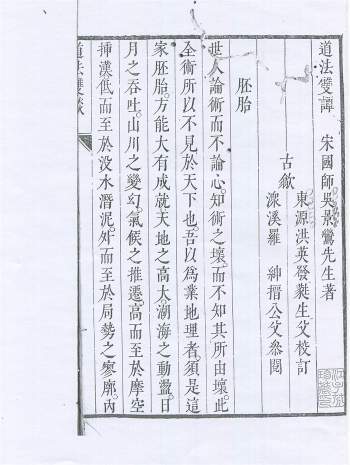 道法雙譚 宋國師吳景鸞先生著
東源洪英發蕤生父校訂
古歙
深溪羅 紳搢公父叅閱
胚胎
世人論術而不論心。知術之壞。而不知其所由壞。此
全術所以不見於天下也。吾以為業地理者。須是這
家胚胎。方能大有成就。天地之高大。湖海之動盪。日
月之吞吐。山川之變幻。氣候之推遷。高而至於摩空
插漢。低而至於没水潛泥。外而至於局勢之寥廓。内
道法雙談